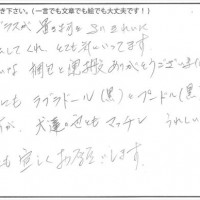 き下さい。(一言でも文章でも絵でも大丈夫です！)
ガラスが
してくれ とても気にいってます
な 梱包と運搬 ありがとうございま
にも ラブラドール(黒)とプードル(黒)
が、犬達の色ともマッチし うれしい
も宜しくお願いします。